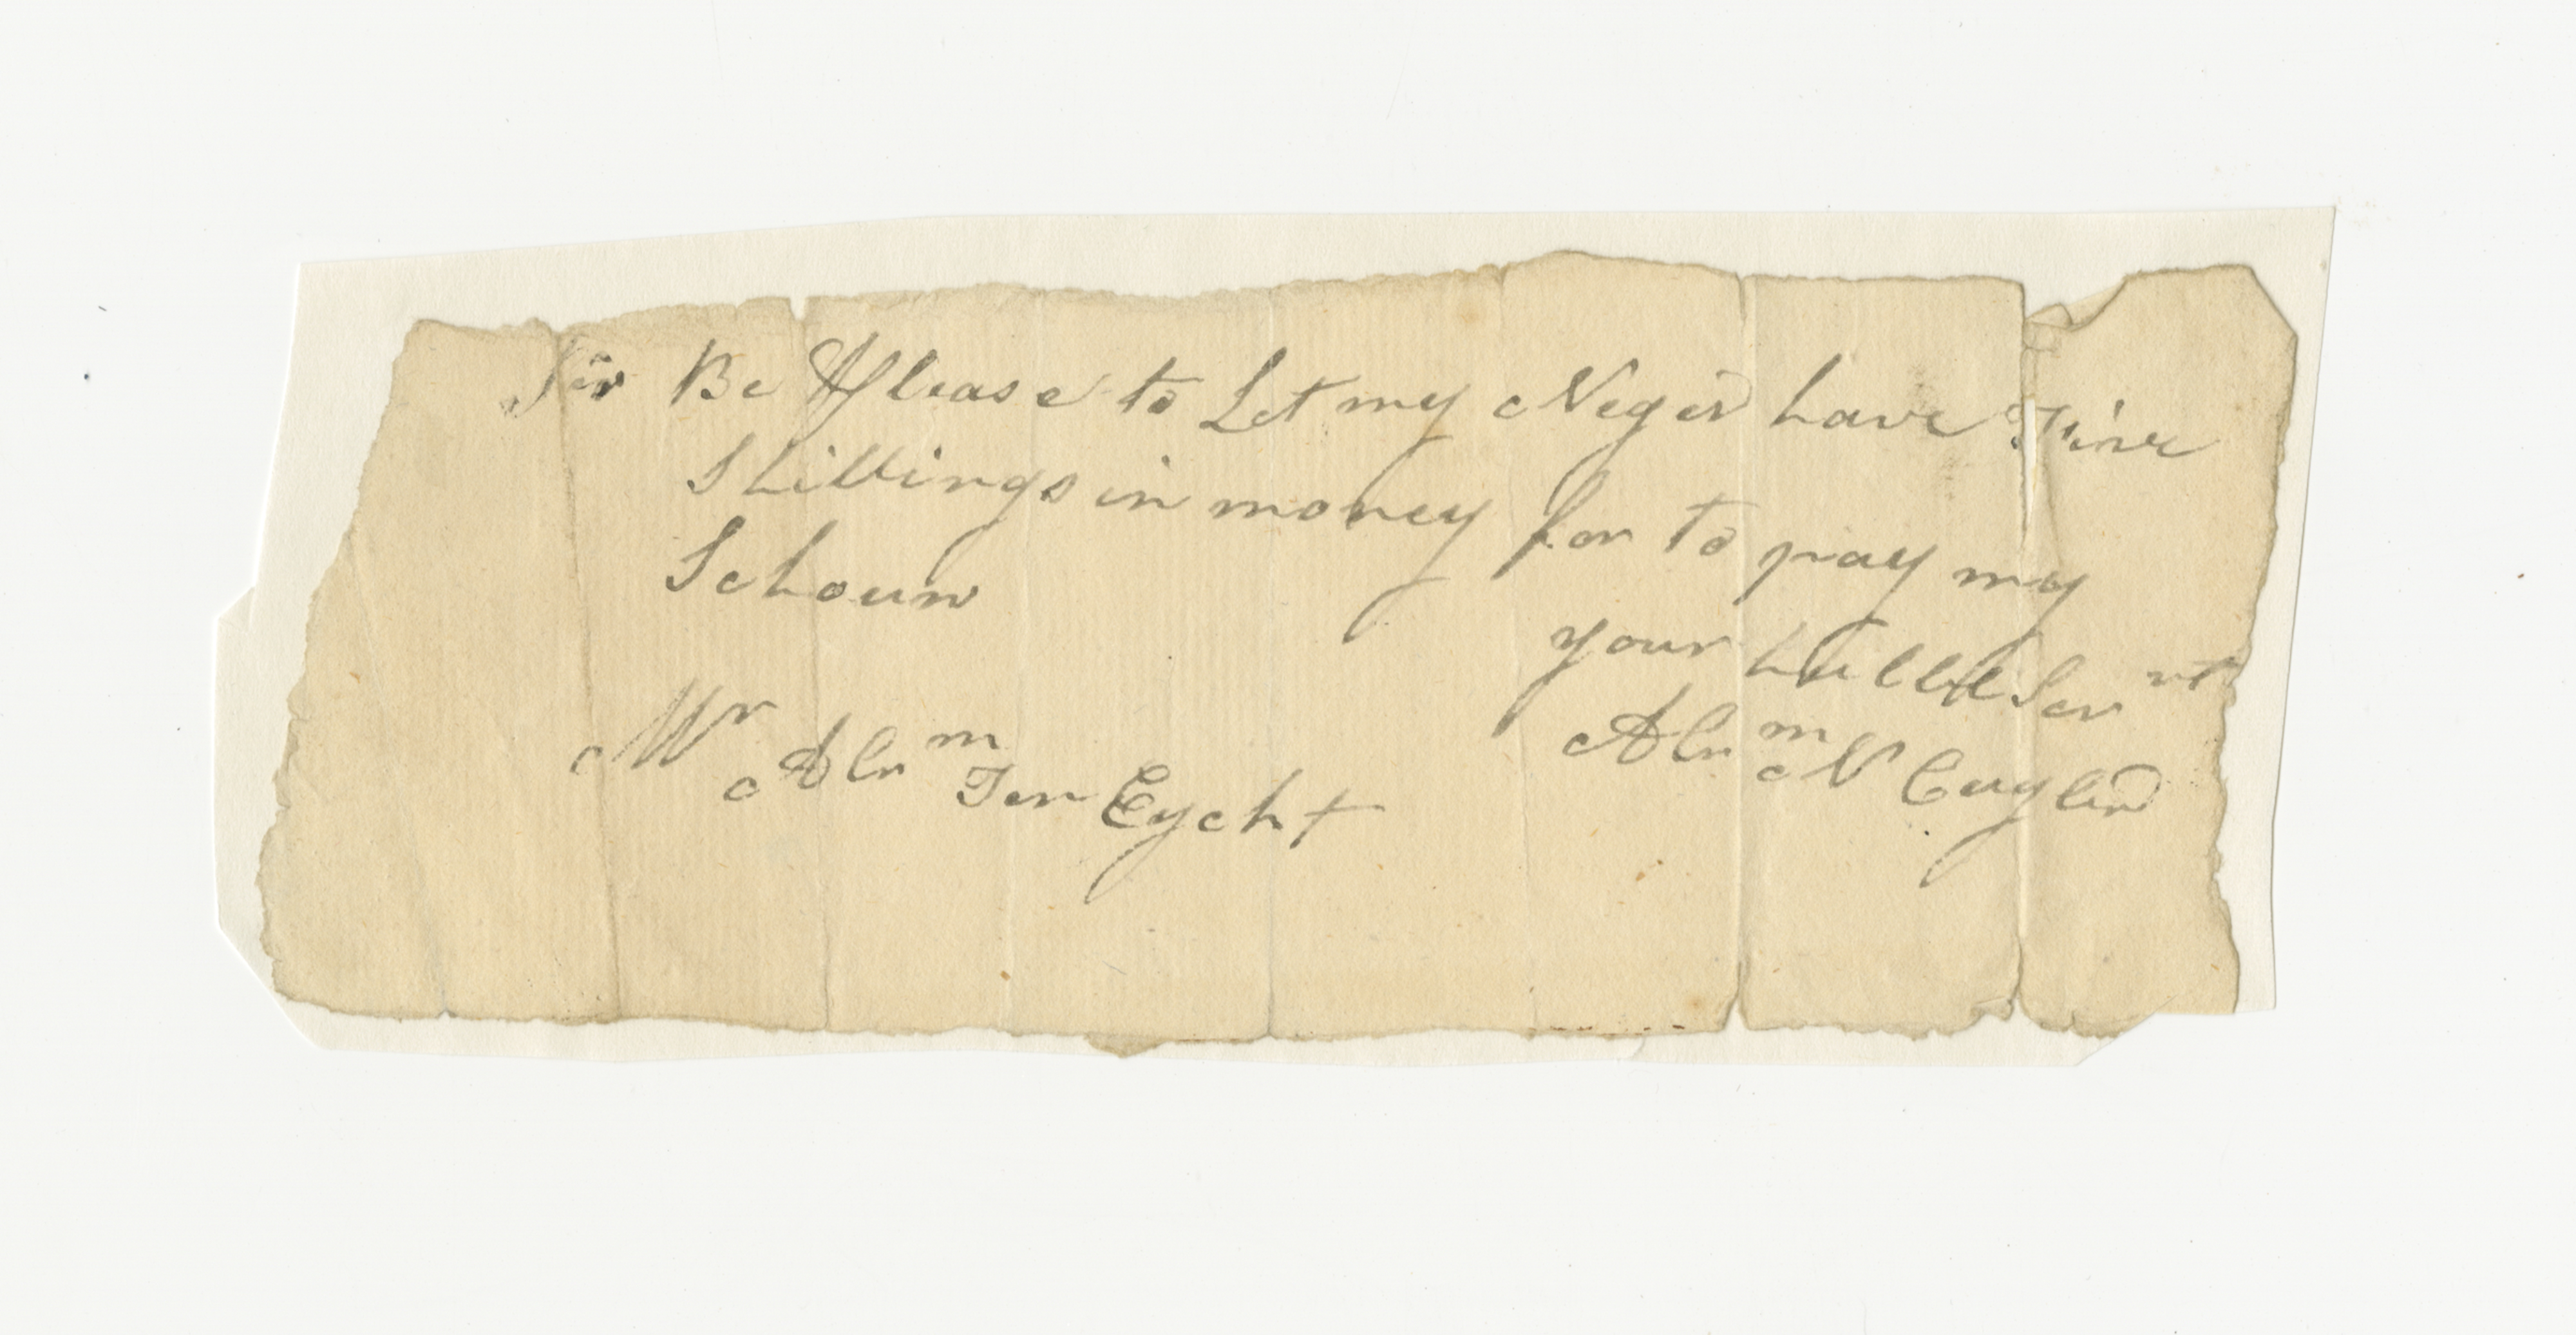 Sir Be Please to Let my Neger have Five
Shillings in money for to pay my
Schoun
your hulble Servt
Abrm N Cuyler
Mr Abrm Ten Eycht